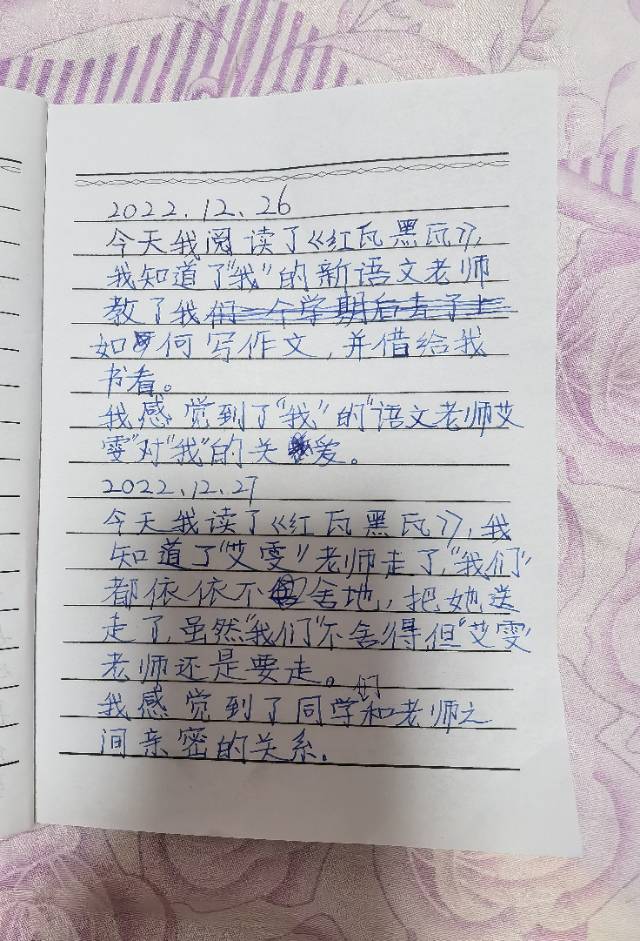 2022.12.26
今天我阅读了《红瓦黑瓦》,
我知道了"我"的新语文老师
教了我们一个学期后去了上
如何写作文,并借给我
书看。
我感觉到了"我"的"语文老师艾
雯"对"我"的关爱。
2022.12.27
今天我读了《红瓦黑瓦》,我
知道了"艾雯"老师走了,"我们"
都依依不舍地,把她送
走了,虽然"我们"不舍得,但"艾雯"
老师还是要走。
我感觉到了同学们和老师之
间亲密的关系.